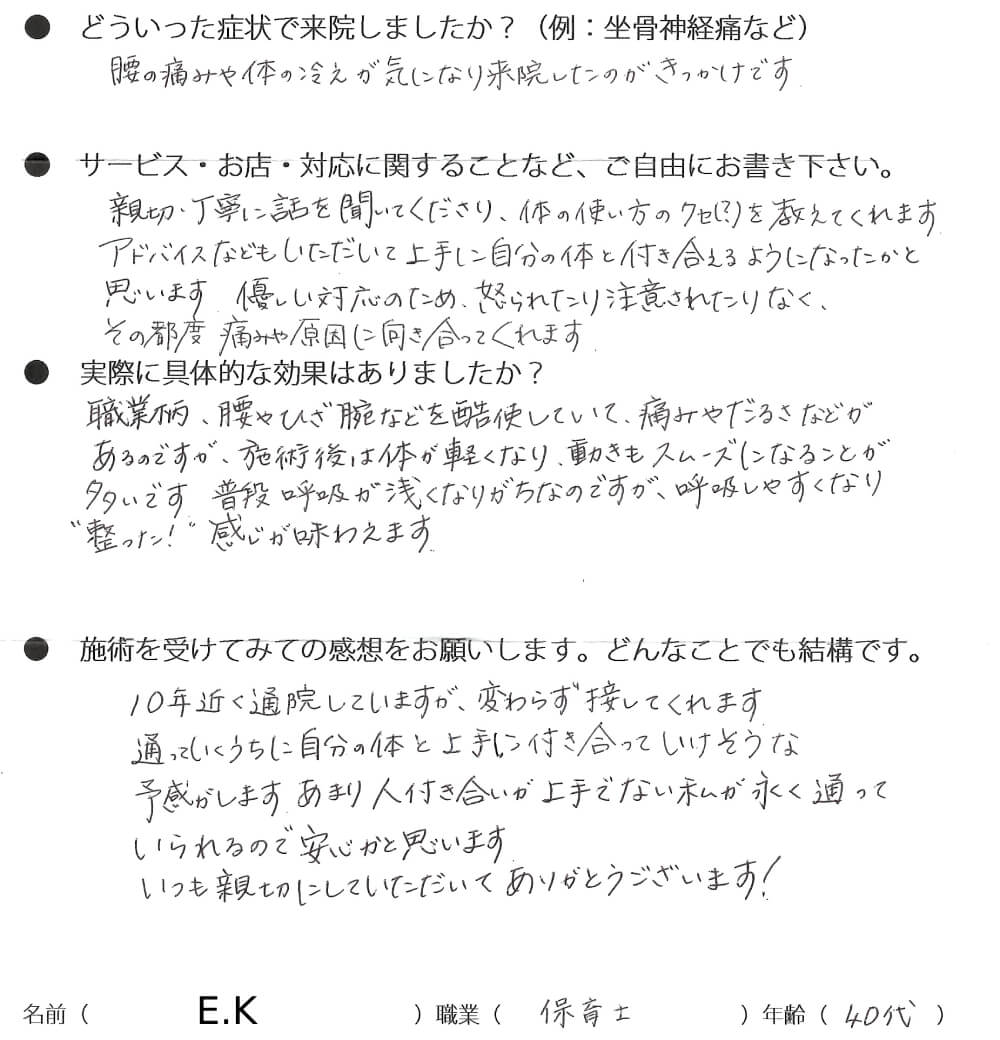 ● どういった症状で来院しましたか？（例：坐骨神経痛など）
腰の痛みや体の冷えが気になり来院したのがきっかけです
● サービス・お店・対応に関することなど、ご自由にお書き下さい。
親切・丁寧に話を聞いてくださり、体の使い方のクセ(?)を教えてくれます
アドバイスなどもいただいて上手に自分の体と付き合えるようになったかと
思います 優しい対応のため、怒られたり注意されたりなく、
その都度 痛みや原因に向き合ってくれます
● 実際に具体的な効果はありましたか？
職業柄、腰やひざ腕などを酷使していて、痛みやだるさなどが
あるのですが、施術後は体が軽くなり、動きもスムーズになることが
多いです 普段呼吸が浅くなりがちなのですが、呼吸しやすくなり
“整った！” 感じが味わえます
● 施術を受けてみての感想をお願いします。どんなことでも結構です。
10年近く通院していますが、変わらず接してくれます
通っていくうちに自分の体と上手に付き合っていけそうな
予感がします あまり人付き合いが上手でない私が永く通って
いられるので安心かと思います
いつも親切にしていただいてありがとうございます！
名前（ E.K ）職業（ 保育士 ）年齢（ 40代 ）